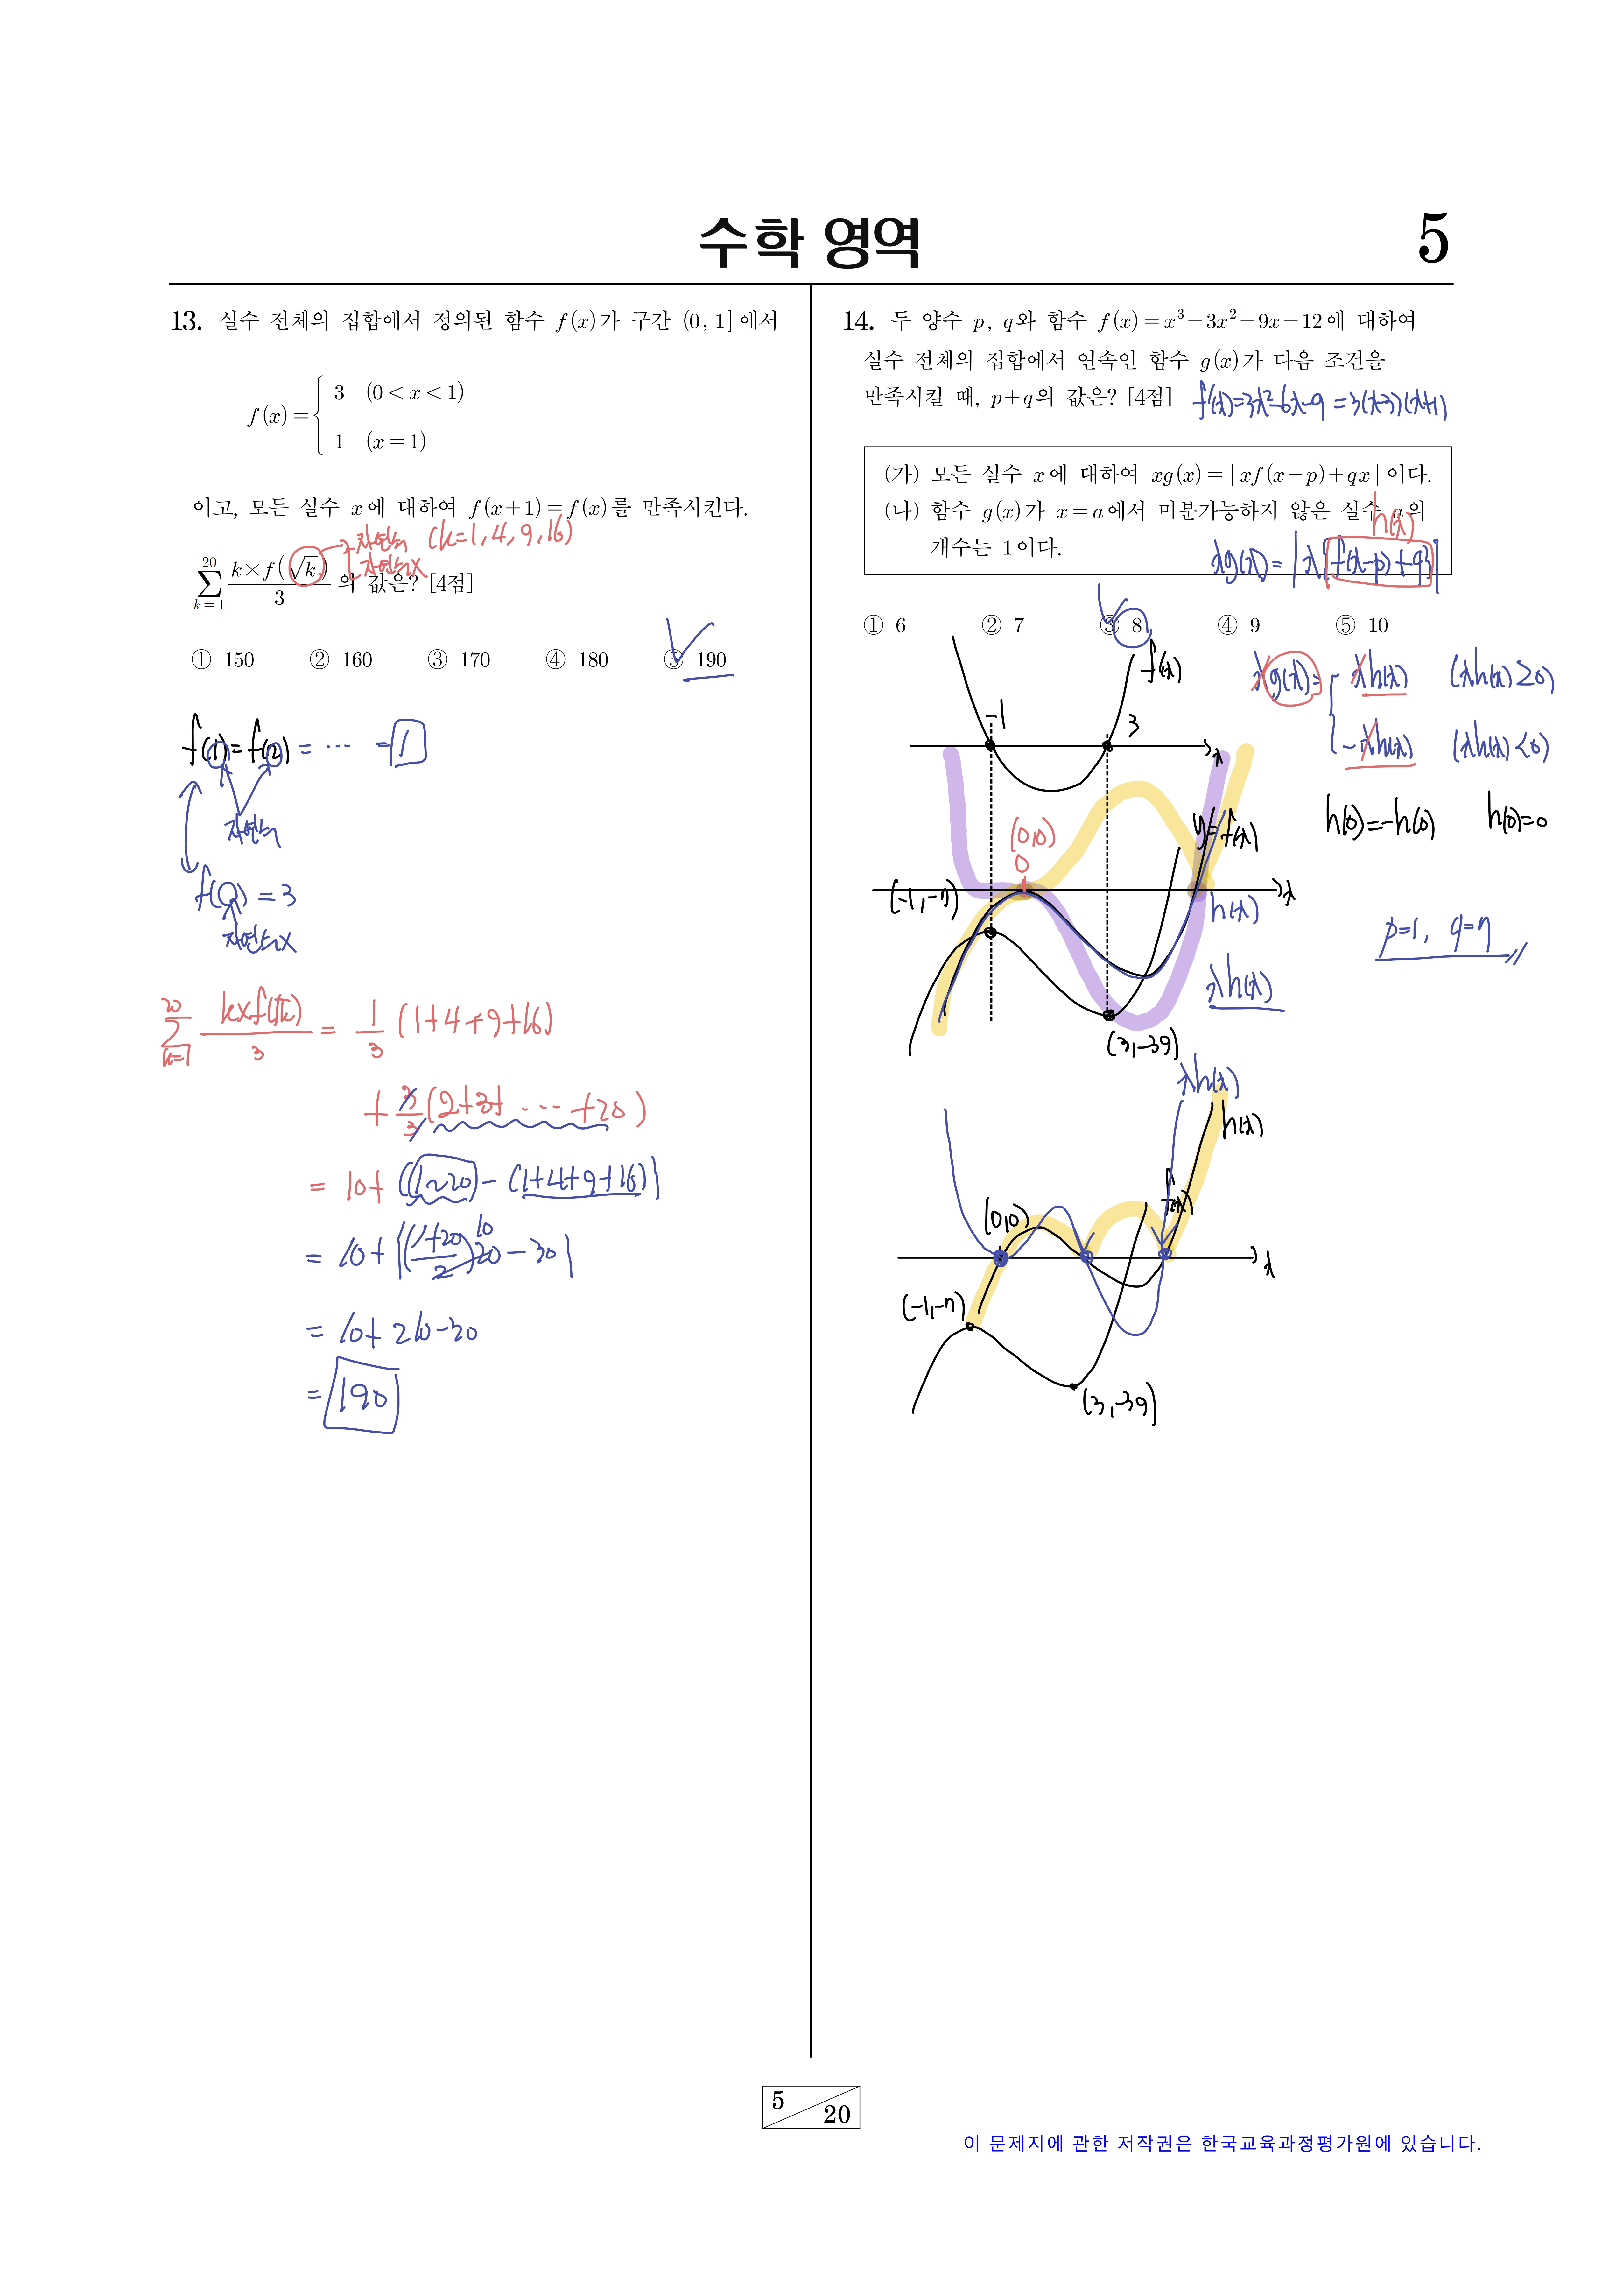 수학 영역
5
13. 실수 전체의 집합에서 정의된 함수 f(x)가 구간 (0, 1]에서
f(x) = { 3 (0 < x < 1)
1 (x = 1)
이고, 모든 실수 x에 대하여 f(x+1) = f(x)를 만족시킨다.
자연수 (k=1, 4, 9, 16)
자연수X
20
∑ k×f(√k)/3 의 값은? [4점]
k=1
① 150 ② 160 ③ 170 ④ 180 ⑤ 190
f(1)=f(2) = ⋯ =1
자연수
f(○) = 3
자연수X
20
∑ k×f(√k)/3 = 1/3 (1+4+9+16)
k=1
+ 3/3 (2+3+ ⋯ +20)
= 10+ {(1~20) - (1+4+9+16)}
= 10+ {((1+20)/2)20 - 30}
10
= 10+ 210-30
= 190
14. 두 양수 p, q와 함수 f(x) = x³ − 3x² − 9x − 12에 대하여
실수 전체의 집합에서 연속인 함수 g(x)가 다음 조건을
만족시킬 때, p+q의 값은? [4점]
f'(x)=3x²-6x-9 = 3(x-3)(x+1)
(가) 모든 실수 x에 대하여 xg(x) = | xf(x−p)+qx | 이다.
(나) 함수 g(x)가 x = a에서 미분가능하지 않은 실수 a의
개수는 1이다.
h(x)
xg(x) = |x{f(x-p)+q}|
① 6 ② 7 ③ 8 ④ 9 ⑤ 10
f'(x)
-1
3
x
xg(x)= { xh(x) (xh(x)≥0)
-xh(x) (xh(x)<0)
h(0)=-h(0) h(0)=0
(0,0)
0
y=f(x)
(-1,-7)
x
h(x)
p=1, q=7
xh(x)
(3,-39)
xh(x)
h(x)
(0,0)
f(x)
x
(-1,-7)
(3,-39)
5
20
이 문제지에 관한 저작권은 한국교육과정평가원에 있습니다.